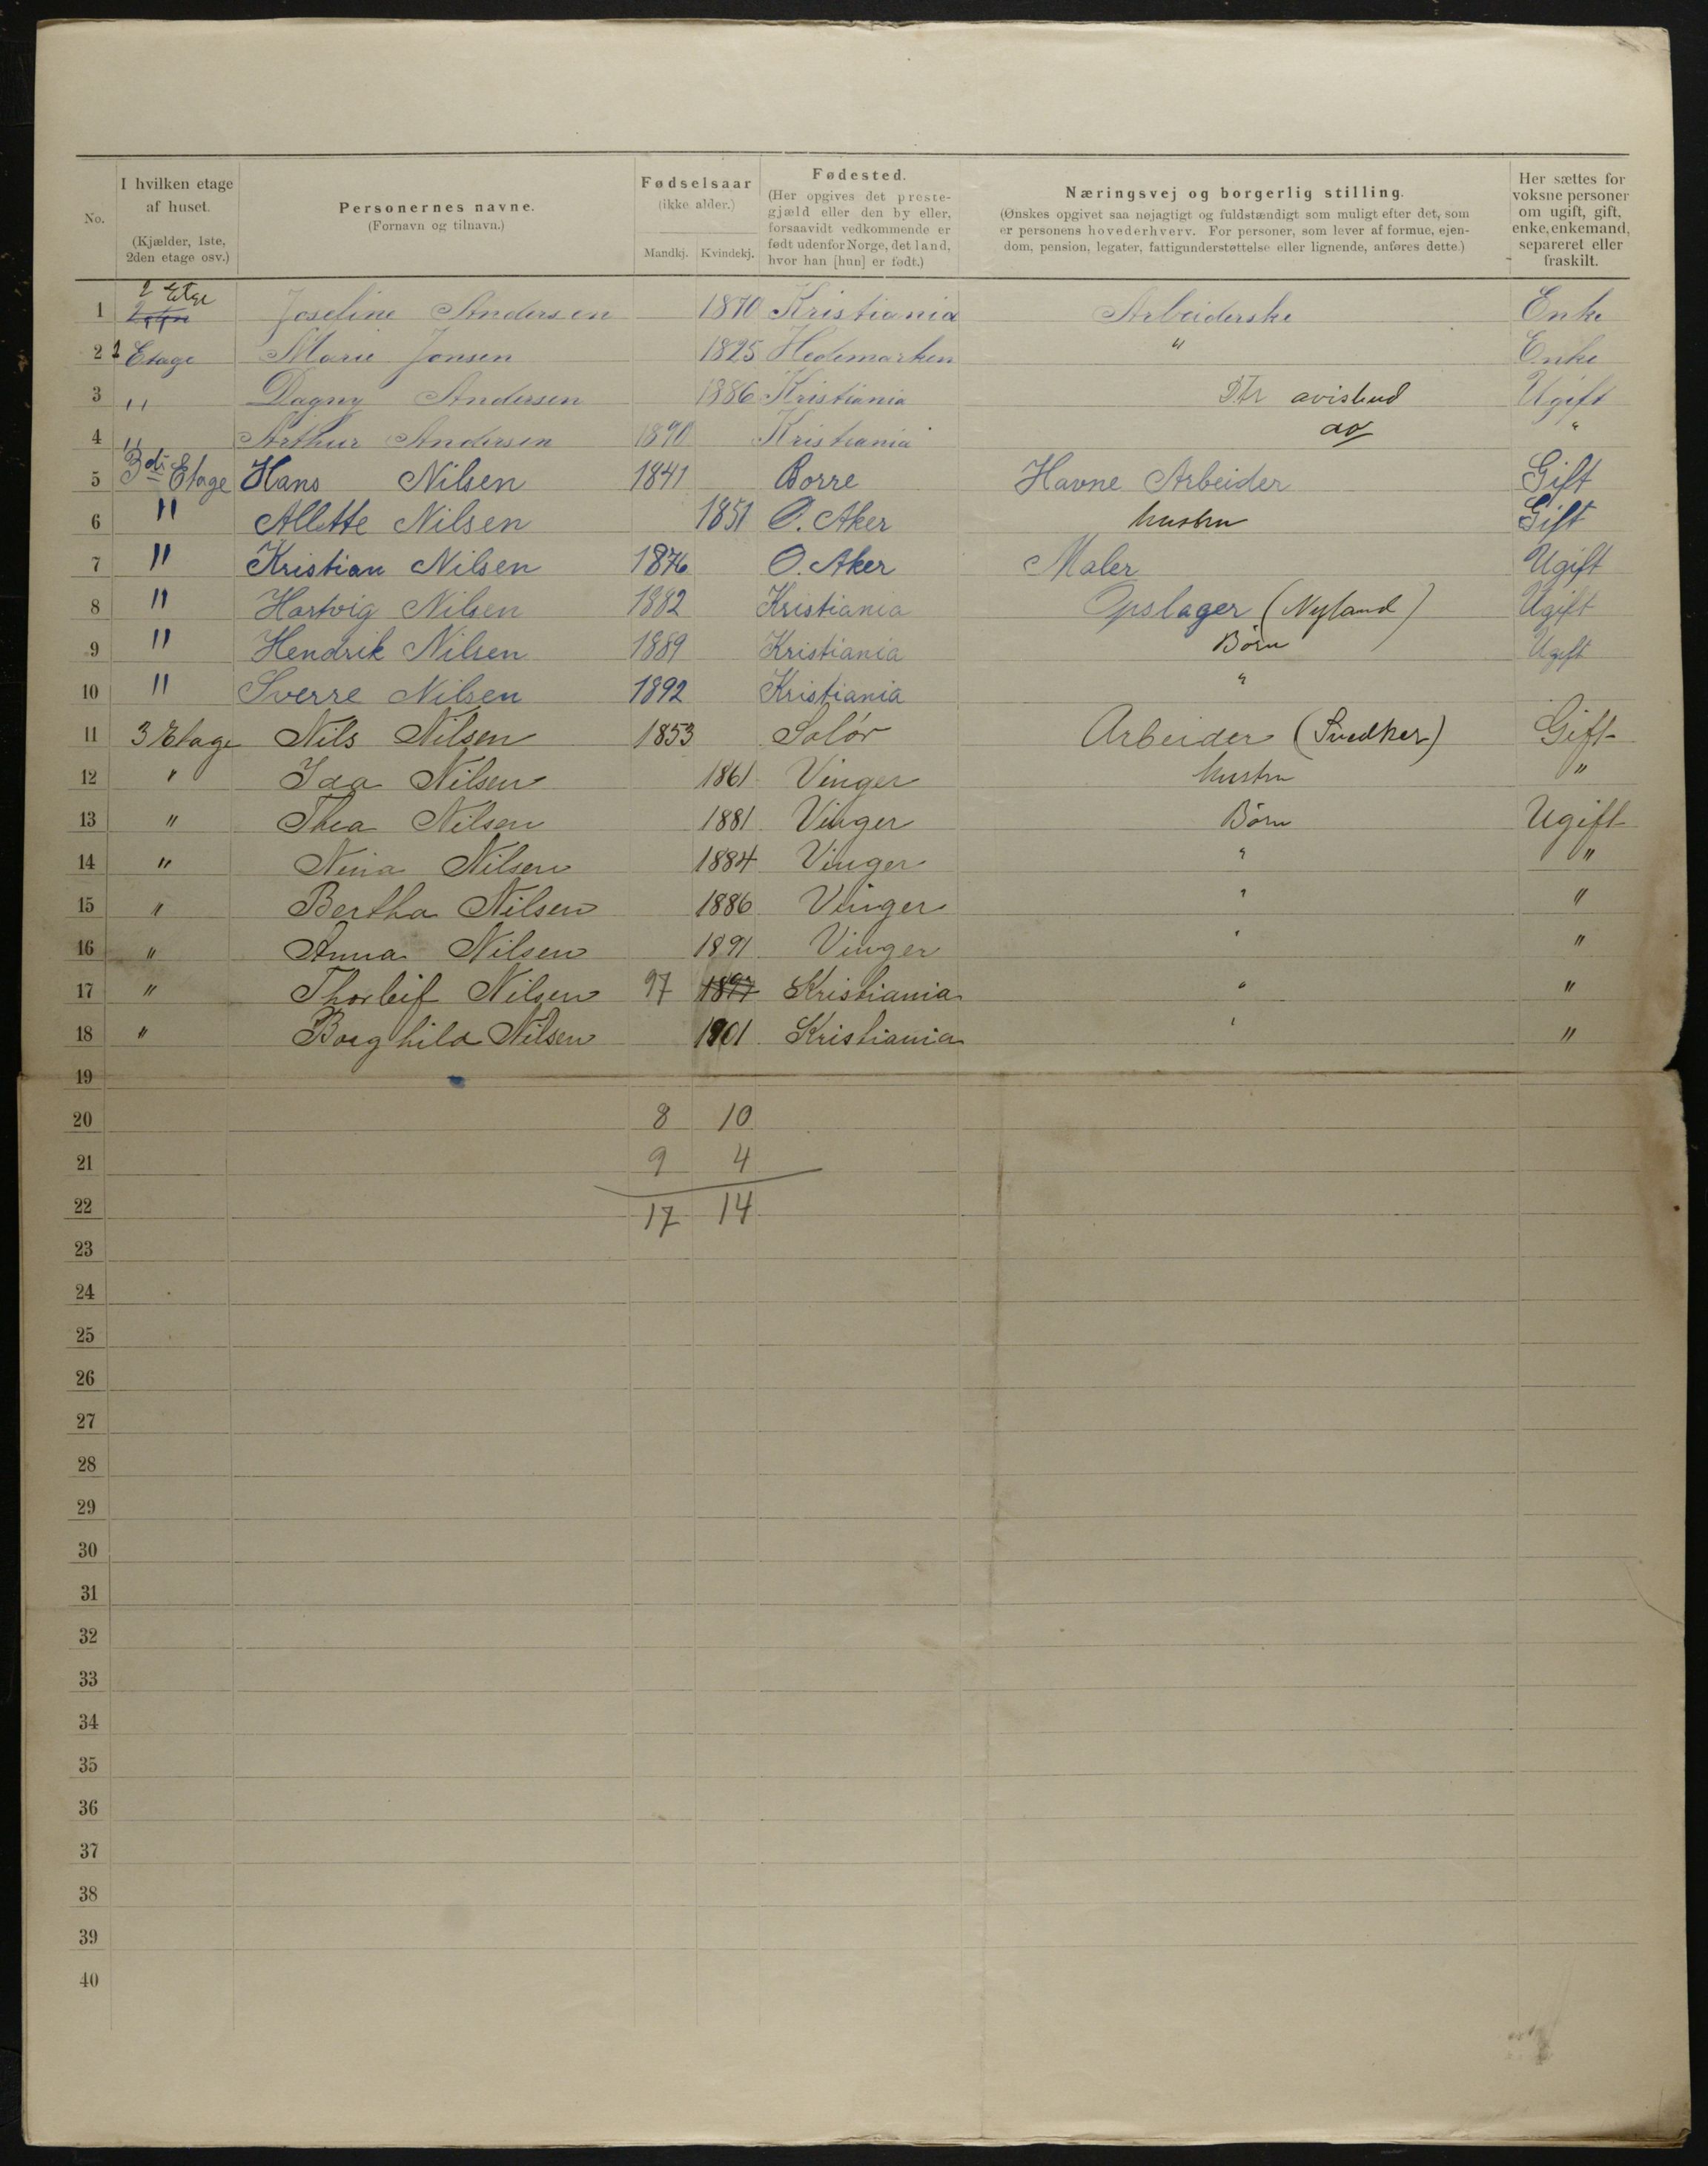 No.
I hvilken etage
af huset.
(Kjælder, 1ste,
2den etage osv.)
Personernes navne.
(Fornavn og tilnavn.)
Fødselsaar
(ikke alder.)
Mandkj. Kvindekj.
Fødested.
(Her opgives det preste-
gjæld eller den by eller,
forsaavidt vedkommende er
født udenfor Norge, det land,
hvor han [hun] er født.)
Næringsvej og borgerlig stilling.
(Ønskes opgivet saa nøjagtigt og fuldstændigt som muligt efter det, som
er personens hovederhverv. For personer, som lever af formue, ejen-
dom, pension, legater, fattigunderstøttelse eller lignende, anføres dette.)
Her sættes for
voksne personer
om ugift, gift,
enke, enkemand,
separeret eller
fraskilt.
1 2 Etge Joseline Andersen 1870 Kristiania Arbeiderske Enke
2 2 Etage Marie Jonsen 1825 Hedemarken " Enke
3 " Dagny Andersen 1886 Kristiania Dtr avisbud Ugift
4 " Arthur Andersen 1890 Kristiania do "
5 3di Etage Hans Nilsen 1841 Borre Havne Arbeider Gift
6 " Allette Nilsen 1851 O. Aker hustru Gift
7 " Kristian Nilsen 1876 O. Aker Maler Ugift
8 " Hartvig Nilsen 1882 Kristiania Opslager (Nyland) Ugift
9 " Hendrik Nilsen 1889 Kristiania Børn Ugift
10 " Sverre Nilsen 1892 Kristiania "
11 3 Etage Nils Nilsen 1853 Solør Arbeider (Snedker) Gift
12 " Ida Nilsen 1861 Vinger hustru "
13 " Thea Nilsen 1881 Vinger Børn Ugift
14 " Nina Nilsen 1884 Vinger " "
15 " Bertha Nilsen 1886 Vinger " "
16 " Anna Nilsen 1891 Vinger " "
17 " Thorleif Nilsen 97 1897 Kristiania " "
18 " Borghild Nilsen 1901 Kristiania " "
19
20 8 10
21 9 4
22 17 14
23
24
25
26
27
28
29
30
31
32
33
34
35
36
37
38
39
40